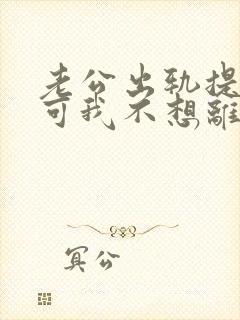 老公出轨提
可我不想離
冥公